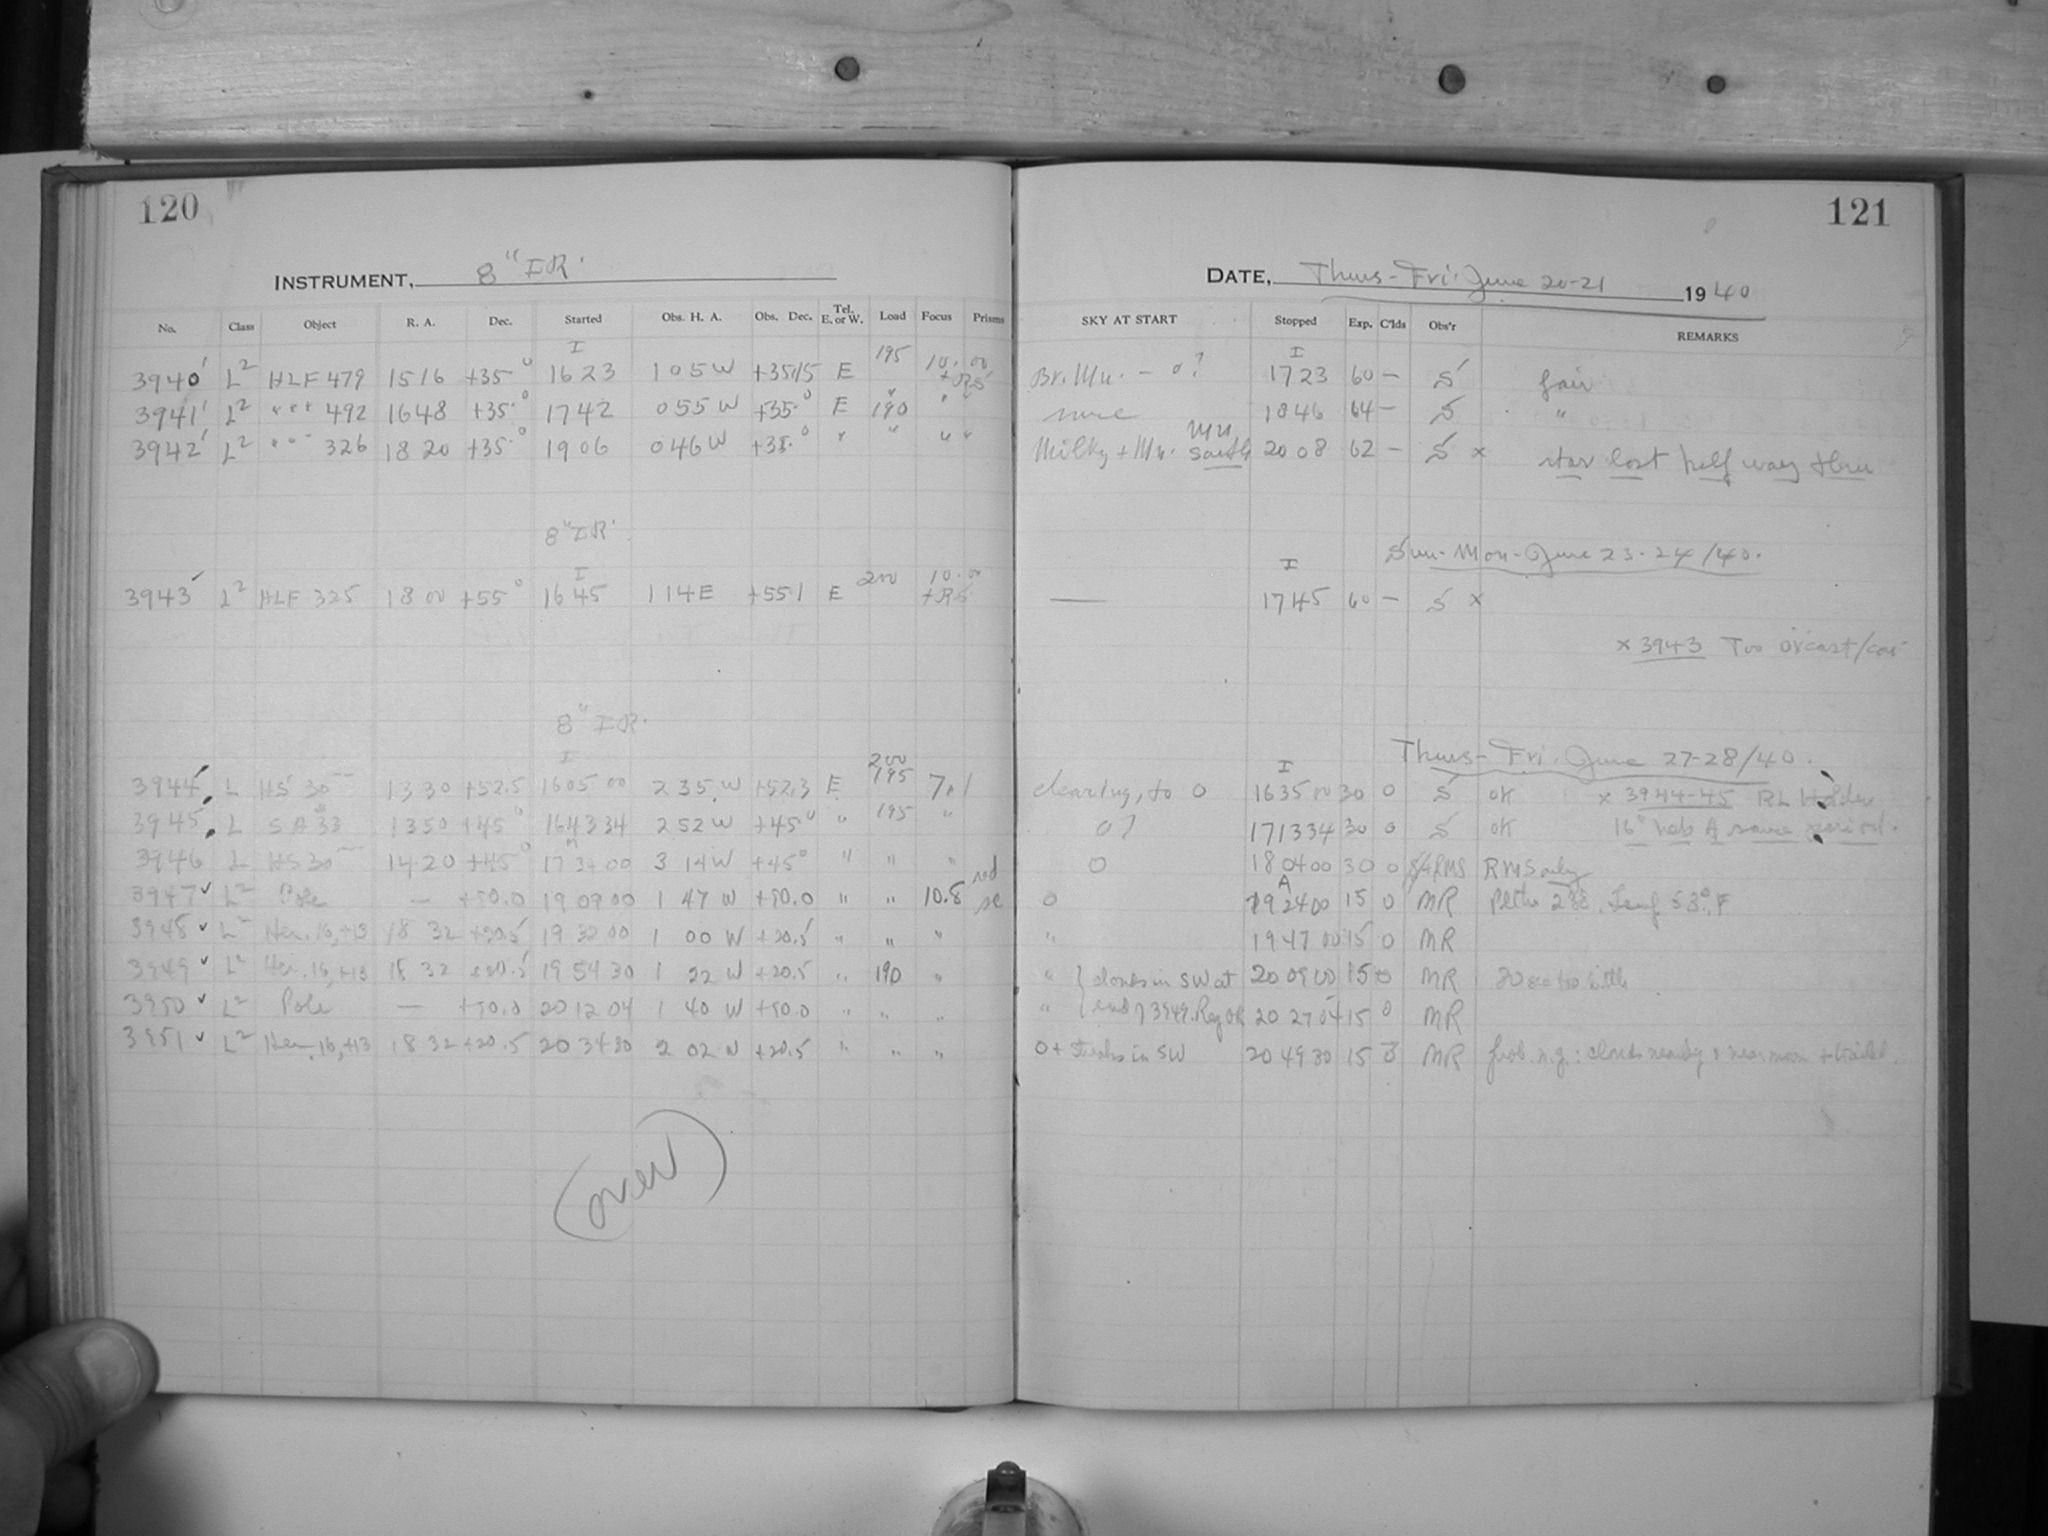 120
INSTRUMENT, 8" IR.
No. Class Object R. A. Dec. Started Obs. H. A. Obs. Dec. Tel. E. or W. Load Focus Prisms
3940 L2 HLF 479 15 16 +35° 16 23 1 05 W +35.15 E 195 10.00
3941 L2 " " " 492 16 48 +35.° 17 42 0 55 W +35.° E 190 "
3942 L2 " " " 326 18 20 +35.° 19 06 0 46 W +35.° " " " "
8" IR.
3943 L2 HLF 325 18 00 +55° 16 45 1 14 E +55.1 E 200 10.00
8" IR.
3944 L HS 30 13 30 +52.5 16 05 00 2 35 W +52.3 E 200 195 7.1
3945 L SA 33 13 50 +45° 16 43 34 2 52 W +45° " 195 "
3946 L HS 30 14 20 +45° 17 34 00 3 14 W +45° " " "
3947 L2 Pole — +90.0 19 09 00 1 47 W +90.0 " " 10.8 red
3948 L2 Her. 16, +13 18 32 +20.5 19 32 00 1 00 W +20.5 " " "
3949 L2 Her. 16, +13 18 32 +20.5 19 54 30 1 22 W +20.5 " 190 "
3950 L2 Pole — +90.0 20 12 04 1 40 W +90.0 " " "
3951 L2 Her. 16, +13 18 32 +20.5 20 34 30 2 02 W +20.5 " " "
(over)
121
DATE, Thurs-Fri. June 20-21 1940
SKY AT START Stopped Exp. C'lds Obs'r REMARKS
Br. Mn. - 0? 17 23 60 - S fair
18 46 64 - S "
Milky + Mn. south 20 08 62 - S x star lost half way thru
Sun-Mon-June 23-24/40.
— 17 45 60 - S x
x 3943 Too o'cast
Thurs-Fri. June 27-28/40.
clearing, to 0 16 35 00 30 0 S OK x 3944-45 BL Holder
0? 17 13 34 30 0 S OK 16" neb A same period.
0 18 04 00 30 0 RMS RMS only
0 19 24 00 15 0 MR Temp 53° F
" 19 47 00 15 0 MR
" clouds in SW at 20 09 00 15 0 MR 30 sec too little
" end 3949. 20 27 04 15 0 MR
0+ streaks in SW 20 49 30 15 MR prob. n.g.: clouds nearby & near moon + trailed.